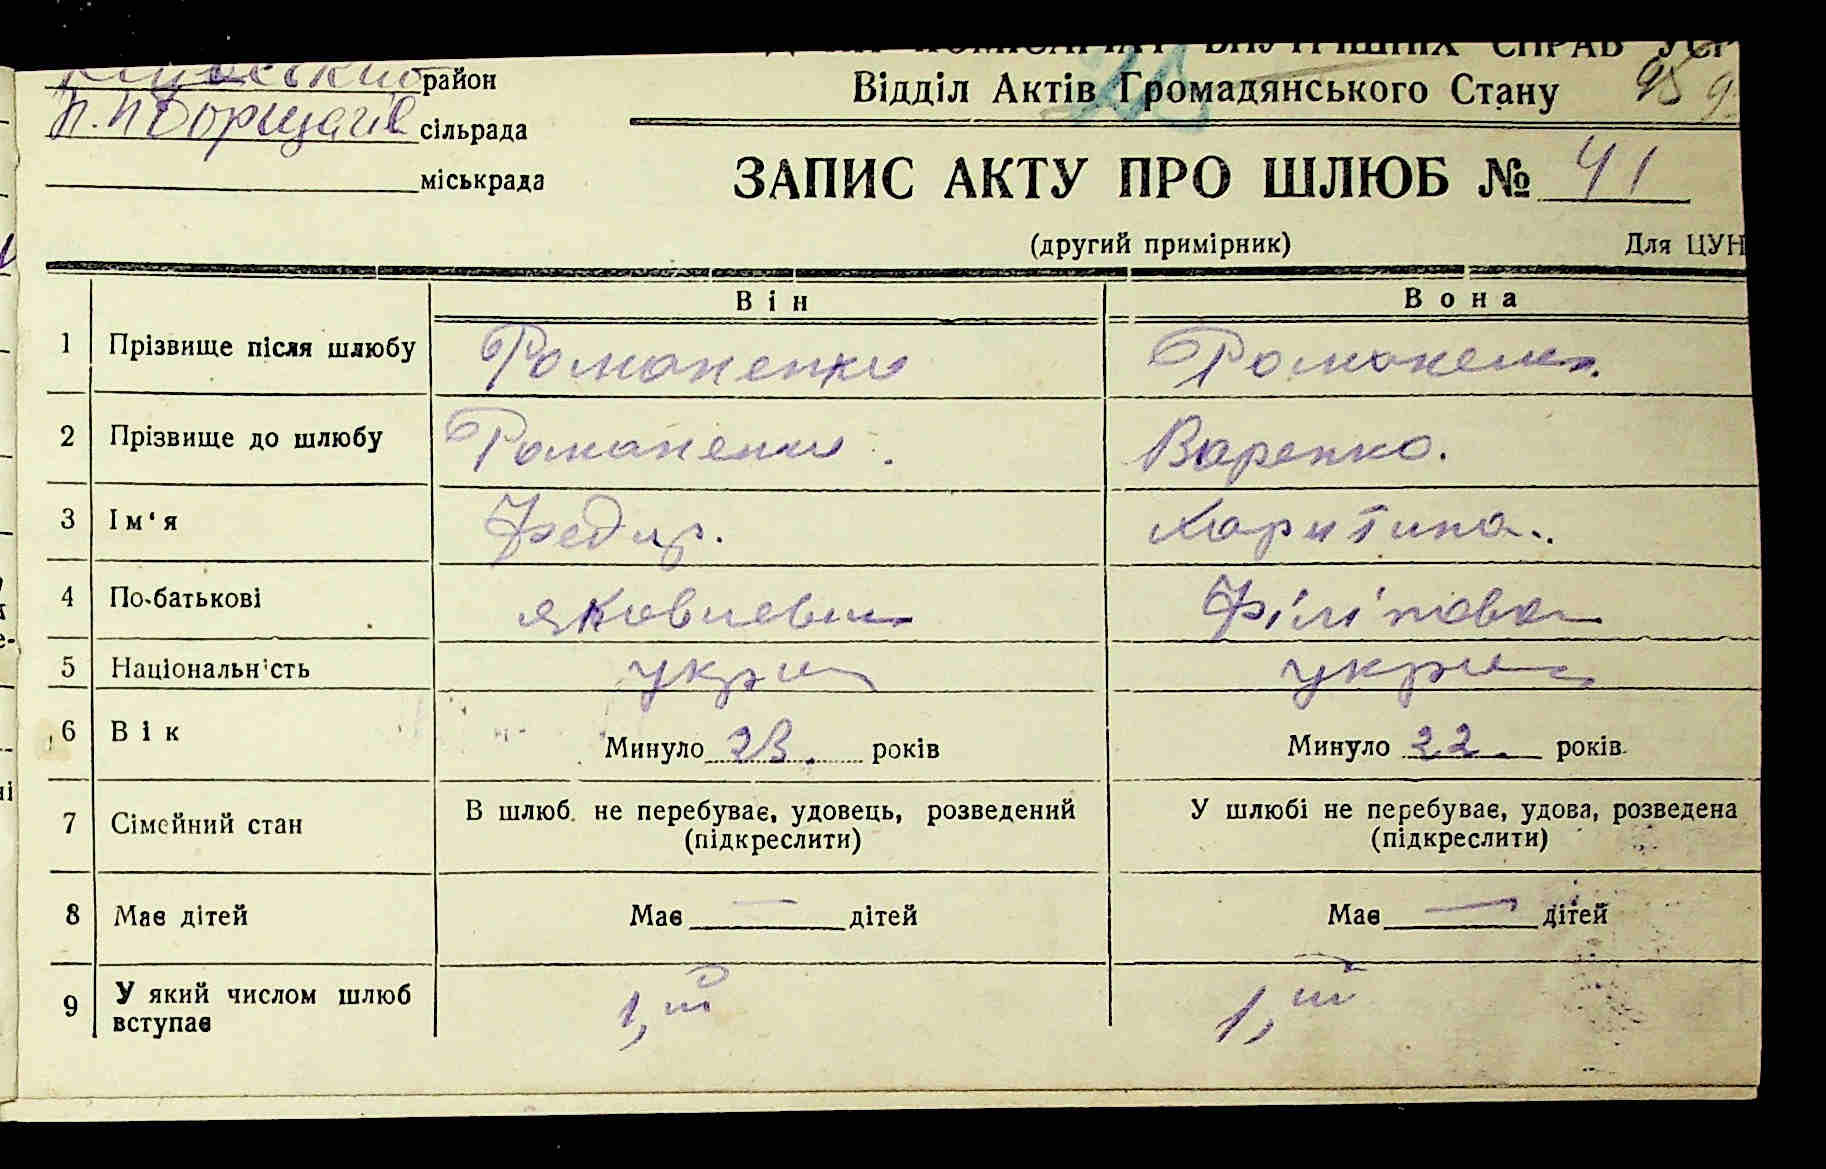 район
П.П Борщагів сільрада
міськрада
ВНУТРІШНІХ СПРАВ УСРР
Відділ Актів Громадянського Стану
ЗАПИС АКТУ ПРО ШЛЮБ № 41
(другий примірник)
Для ЦУН
Він Вона
1 Прізвище після шлюбу Романенко Романенко.
2 Прізвище до шлюбу Романенко. Варенко.
3 Ім‘я Федир. Харитина..
4 По-батькові Яковлевич Філіповна
5 Національність укр укр
6 Вік Минуло 23. років Минуло 22. років
7 Сімейний стан В шлюб. не перебуває, удовець, розведений (підкреслити) У шлюбі не перебуває, удова, розведена (підкреслити)
8 Має дітей Має — дітей Має — дітей
9 У який числом шлюб вступає 1,й 1,й